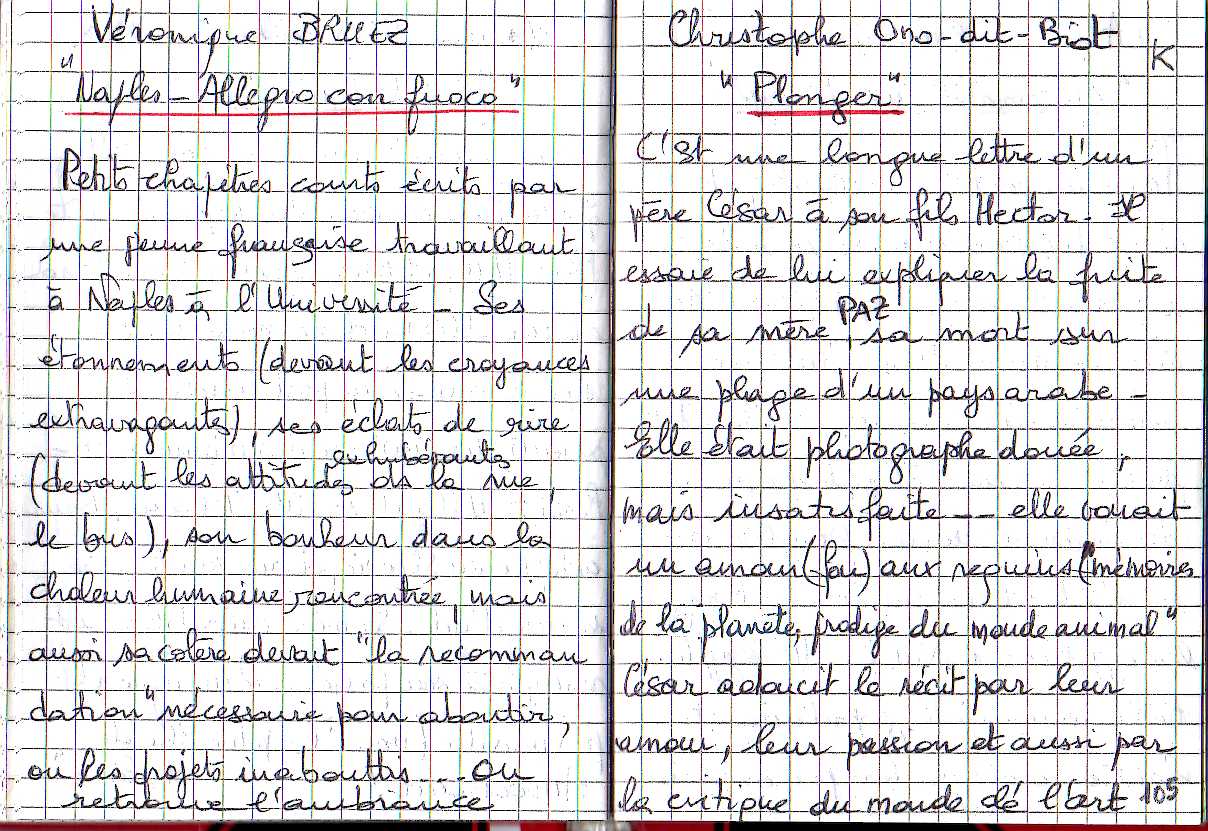 Véronique BRUEZ
"Naples - Allegro con fuoco"
Petits chapitres courts écrits par
une jeune française travaillant
à Naples à l'Université - Ses
étonnements (devant les croyances
extravagantes), ses éclats de rire
exhubérantes
(devant les attitudes ds la rue,
le bus), son bonheur dans la
chaleur humaine rencontrée, mais
aussi sa colère devant "la recomman
dation" nécessaire pour aboutir,
ou les projets inabouttis... On
retrouve l'ambiance
Christophe Ono-dit-Biot
K
"Plonger"
C'est une longue lettre d'un
père César à son fils Hector. Il
essaie de lui expliquer la fuite
PAZ
de sa mère, sa mort sur
une plage d'un pays arabe -
Elle était photographe douée,
mais insatisfaite -- elle vouait
un amour (fou) aux requins ("mémoires
de la planète, prodige du monde animal"
César adoucit le récit par leur
amour, leur passion et aussi par
la critique du monde de l'art 105